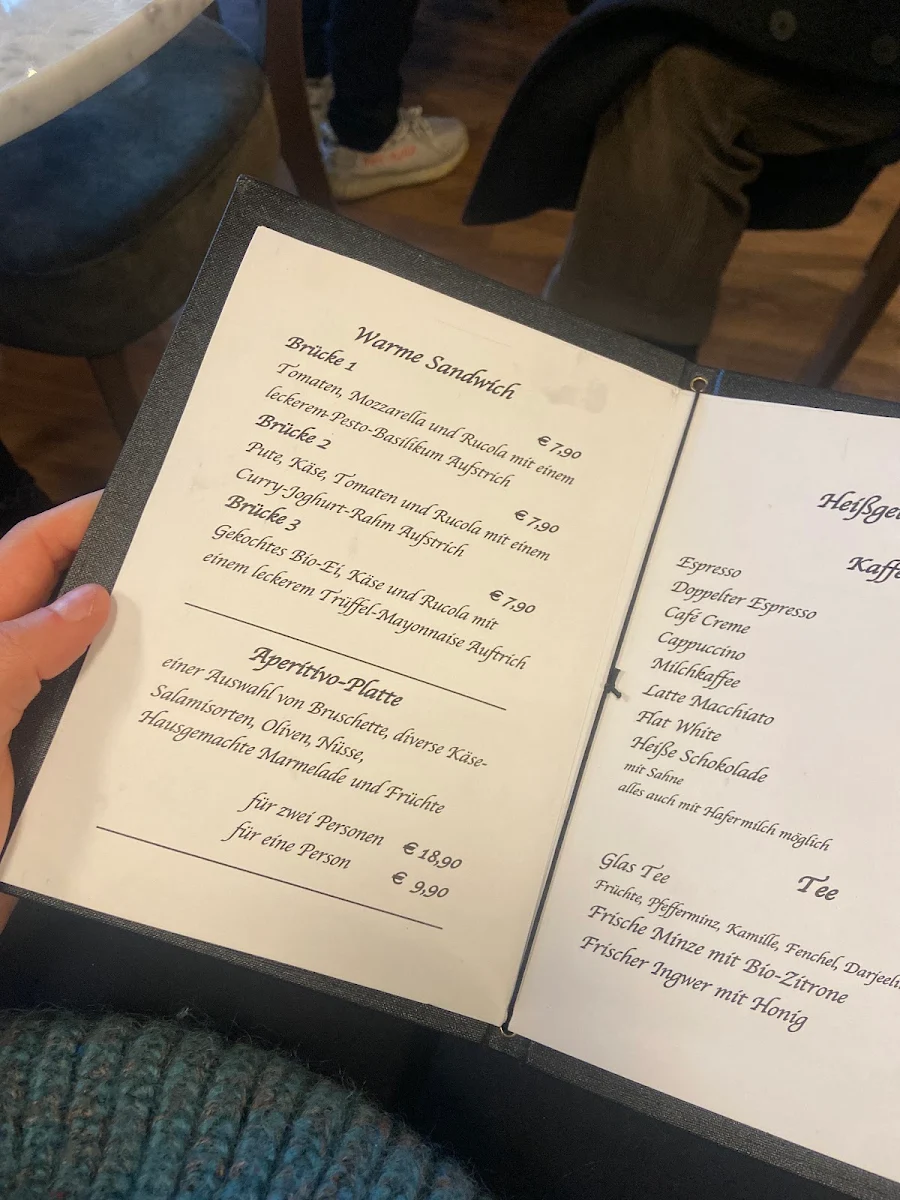 Warme Sandwich
Brücke 1
€ 7,90
Tomaten, Mozzarella und Rucola mit einem
leckerem-Pesto-Basilikum Aufstrich
Brücke 2
€ 7,90
Pute, Käse, Tomaten und Rucola mit einem
Curry-Joghurt-Rahm Aufstrich
Brücke 3
€ 7,90
Gekochtes Bio-Ei, Käse und Rucola mit
einem leckerem Trüffel-Mayonnaise Auftrich
Aperitivo-Platte
einer Auswahl von Bruschette, diverse Käse-
Salamisorten, Oliven, Nüsse,
Hausgemachte Marmelade und Früchte
für zwei Personen € 18,90
für eine Person € 9,90
Heißge
Kaffe
Espresso
Doppelter Espresso
Café Creme
Cappuccino
Milchkaffee
Latte Macchiato
Flat White
Heiße Schokolade
mit Sahne
alles auch mit Hafermilch möglich
Tee
Glas Tee
Früchte, Pfefferminz, Kamille, Fenchel, Darjeeli
Frische Minze mit Bio-Zitrone
Frischer Ingwer mit Honig